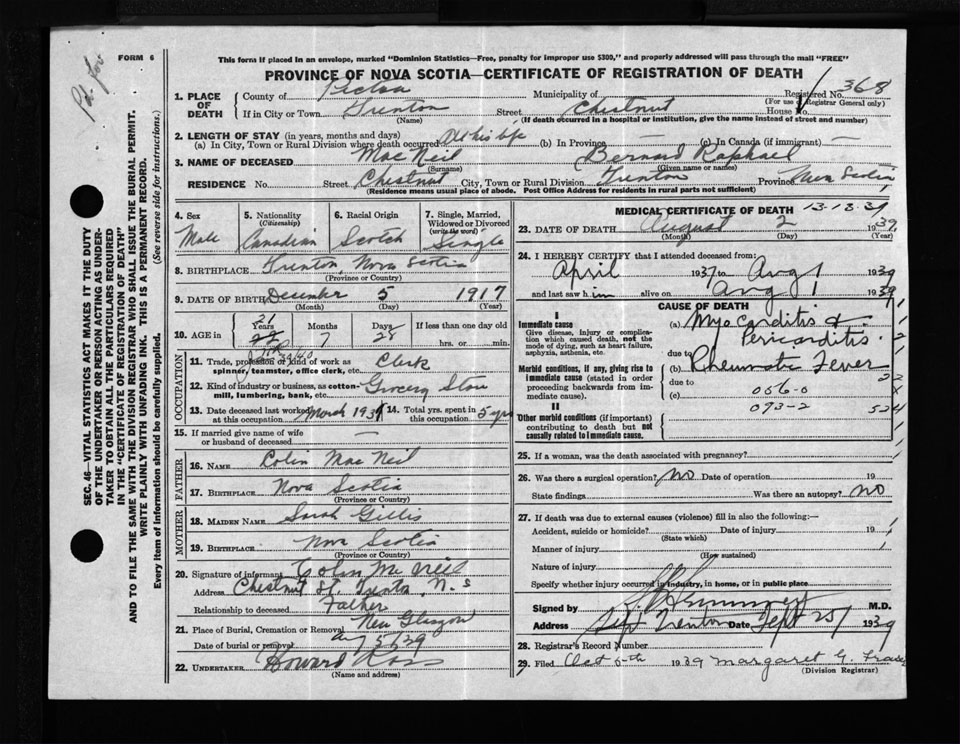 FORM 6
This form if placed in an envelope, marked "Dominion Statistics—Free, penalty for improper use $300," and properly addressed will pass through the mail "FREE"
PROVINCE OF NOVA SCOTIA—CERTIFICATE OF REGISTRATION OF DEATH
SEC. 46—VITAL STATISTICS ACT MAKES IT THE DUTY
OF THE UNDERTAKER OR PERSON ACTING AS UNDER-
TAKER TO OBTAIN ALL THE PARTICULARS REQUIRED
IN THE "CERTIFICATE OF REGISTRATION OF DEATH"
AND TO FILE THE SAME WITH THE DIVISION REGISTRAR WHO SHALL ISSUE THE BURIAL PERMIT.
WRITE PLAINLY WITH UNFADING INK. THIS IS A PERMANENT RECORD.
Every item of information should be carefully supplied. (See reverse side for instructions.)
1. PLACE OF DEATH County of Pictou Municipality of Registered No. 368
(For use of Registrar General only)
If in City or Town Trenton Street Chestnut House No.
(Name) (If death occurred in a hospital or institution, give the name instead of street and number)
2. LENGTH OF STAY (in years, months and days)
(a) In City, Town or Rural Division where death occurred All his life (b) In Province — (c) In Canada (if immigrant) —
3. NAME OF DECEASED MacNeil Bernard Raphael
(Surname) (Given name or names)
RESIDENCE No. Street Chestnut City, Town or Rural Division Trenton Province Nova Scotia
(Residence means usual place of abode. Post Office Address for residents in rural parts not sufficient)
4. Sex Male
5. Nationality (Citizenship) Canadian
6. Racial Origin Scotch
7. Single, Married, Widowed or Divorced (write the word) Single
8. BIRTHPLACE Trenton, Nova Scotia
(Province or Country)
9. DATE OF BIRTH December 5 1917
(Month) (Day) (Year)
10. AGE in 21 Years 7 Months 28 Days If less than one day old
hrs. or min.
OCCUPATION
11. Trade, profession or kind of work as spinner, teamster, office clerk, etc. Clerk
12. Kind of industry or business, as cotton-mill, lumbering, bank, etc. Grocery Store
13. Date deceased last worked at this occupation March 1937 14. Total yrs. spent in this occupation 5 yrs
15. If married give name of wife or husband of deceased —
FATHER
16. NAME Colin MacNeil
17. BIRTHPLACE Nova Scotia
(Province or Country)
MOTHER
18. MAIDEN NAME Sarah Gillis
19. BIRTHPLACE Nova Scotia
(Province or Country)
20. Signature of informant Colin McNeil
Address Chestnut St. Trenton, N.S
Relationship to deceased Father
21. Place of Burial, Cremation or Removal New Glasgow
Date of burial or removal Aug 5/39
22. UNDERTAKER Howard Ross
(Name and address)
MEDICAL CERTIFICATE OF DEATH 13-18-39
23. DATE OF DEATH August 2 1939
(Month) (Day) (Year)
24. I HEREBY CERTIFY that I attended deceased from:
April 1937 to Aug 1 1939
and last saw him alive on Aug 1 1939
CAUSE OF DEATH
I
Immediate cause
Give disease, injury or complication which caused death, not the mode of dying, such as heart failure, asphyxia, asthenia, etc.
(a) Myocarditis & Pericarditis
due to
Morbid conditions, if any, giving rise to immediate cause (stated in order proceeding backwards from immediate).
(b) Rheumatic Fever
due to 056-0
(c) 093-2 524
II
Other morbid conditions (if important) contributing to death but not causally related to immediate cause.
25. If a woman, was the death associated with pregnancy?
26. Was there a surgical operation? No Date of operation 19
State findings Was there an autopsy? no
27. If death was due to external causes (violence) fill in also the following:—
Accident, suicide or homicide? Date of injury 19
(State which)
Manner of injury
(How sustained)
Nature of injury
Specify whether injury occurred in industry, in home, or in public place
Signed by M.D.
Address Trenton Date Sept 25/ 1939
28. Registrar's Record Number
29. Filed Oct 5th 1939 Margaret G. Fraser
(Division Registrar)